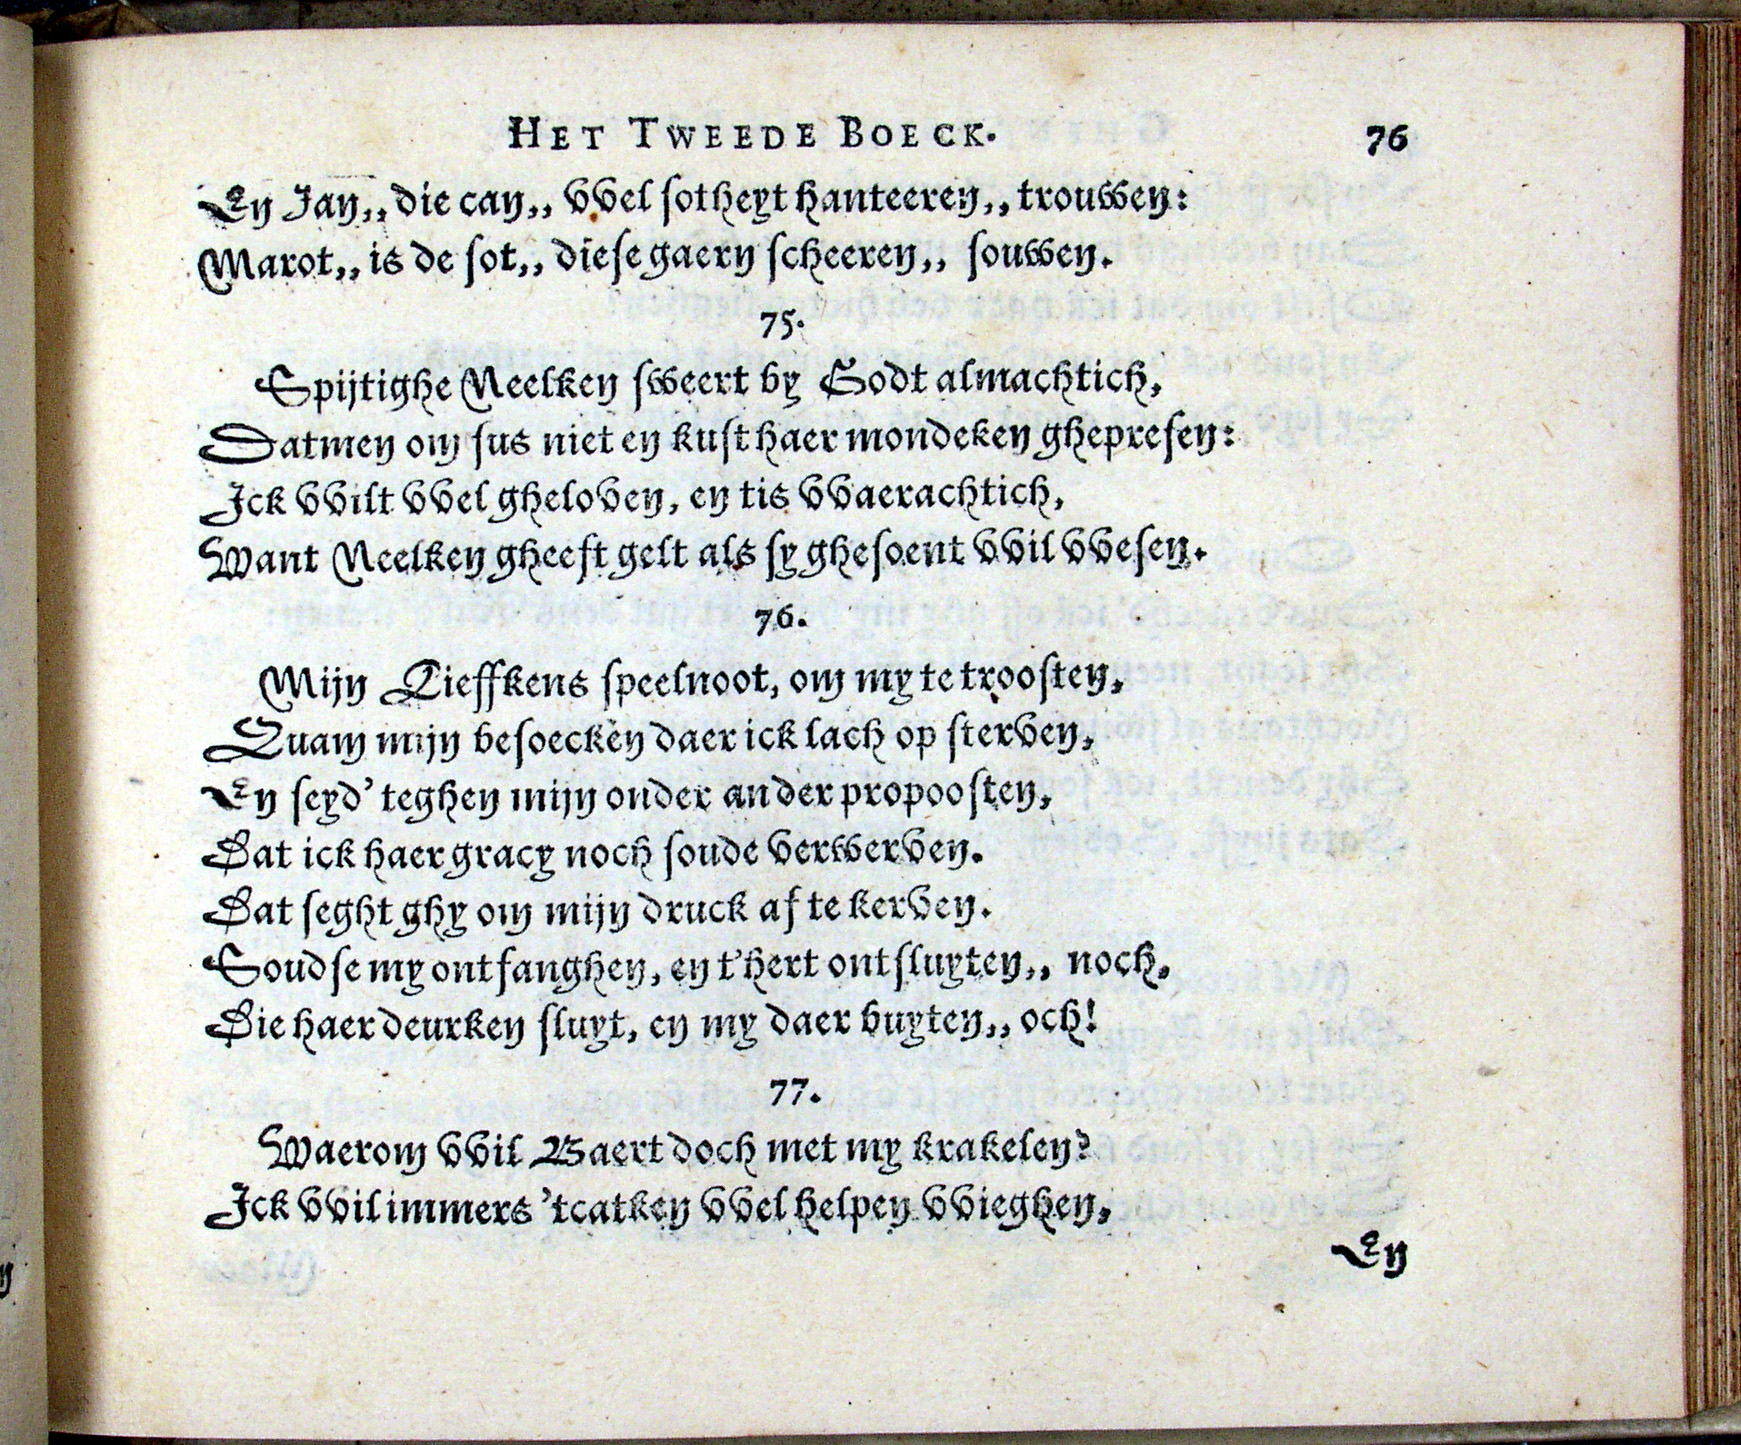 HET TWEEDE BOECK. 76
En Jan,, die can,, vvel sotheyt hanteeren,, trouwen:
Marot,, is de sot,, diese gaern scheeren,, souwen.
75.
Spijtighe Neelken sweert by Godt almachtich,
Datmen om sus niet en kust haer mondeken ghepresen:
Ick vvilt vvel gheloven, en tis vvaerachtich,
Want Neelken gheeft gelt als sy ghesoent vvil vvesen.
76.
Mijn Lieffkens speelnoot, om my te troosten,
Quam mijn besoecken daer ick lach op sterven,
En seyd' teghen mijn onder ander propoosten,
Dat ick haer gracy noch soude verwerven.
Dat seght ghy om mijn druck af te kerven.
Soudse my ontfanghen, en t'hert ontsluyten,, noch,
Die haer deurken sluyt, en my daer buyten,, och!
77.
Waerom vvil Baert doch met my krakelen?
Ick vvil immers 'tcatken vvel helpen vvieghen,
En